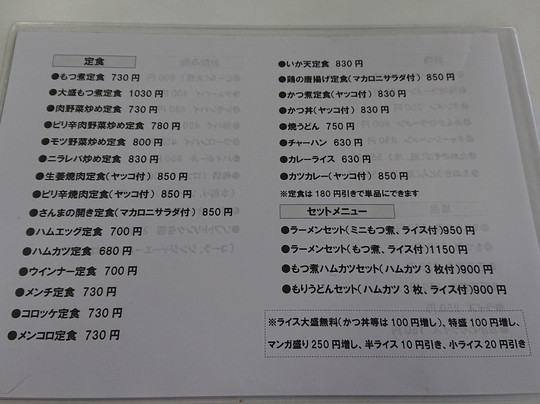 定食
●もつ煮定食 730円
●大盛もつ煮定食 1030円
●肉野菜炒め定食 730円
●ピリ辛肉野菜炒め定食 780円
●モツ野菜炒め定食 800円
●ニラレバ炒め定食 830円
●生姜焼肉定食(ヤッコ付) 850円
●ピリ辛焼肉定食(ヤッコ付) 850円
●さんまの開き定食(マカロニサラダ付) 850円
●ハムエッグ定食 700円
●ハムカツ定食 680円
●ウインナー定食 700円
●メンチ定食 730円
●コロッケ定食 730円
●メンコロ定食 730円
●いか天定食 830円
●鶏の唐揚げ定食(マカロニサラダ付) 850円
●かつ煮定食(ヤッコ付) 830円
●かつ丼(ヤッコ付) 830円
●焼うどん 750円
●チャーハン 630円
●カレーライス 630円
●カツカレー(ヤッコ付) 850円
※定食は180円引きで単品にできます
セットメニュー
●ラーメンセット(ミニもつ煮、ライス付)950円
●ラーメンセット(もつ煮、ライス付)1150円
●もつ煮ハムカツセット(ハムカツ3枚付)900円
●もりうどんセット(ハムカツ3枚、ライス付)900円
※ライス大盛無料(かつ丼等は100円増し)、特盛100円増し、
マンガ盛り250円増し、半ライス10円引き、小ライス20円引き